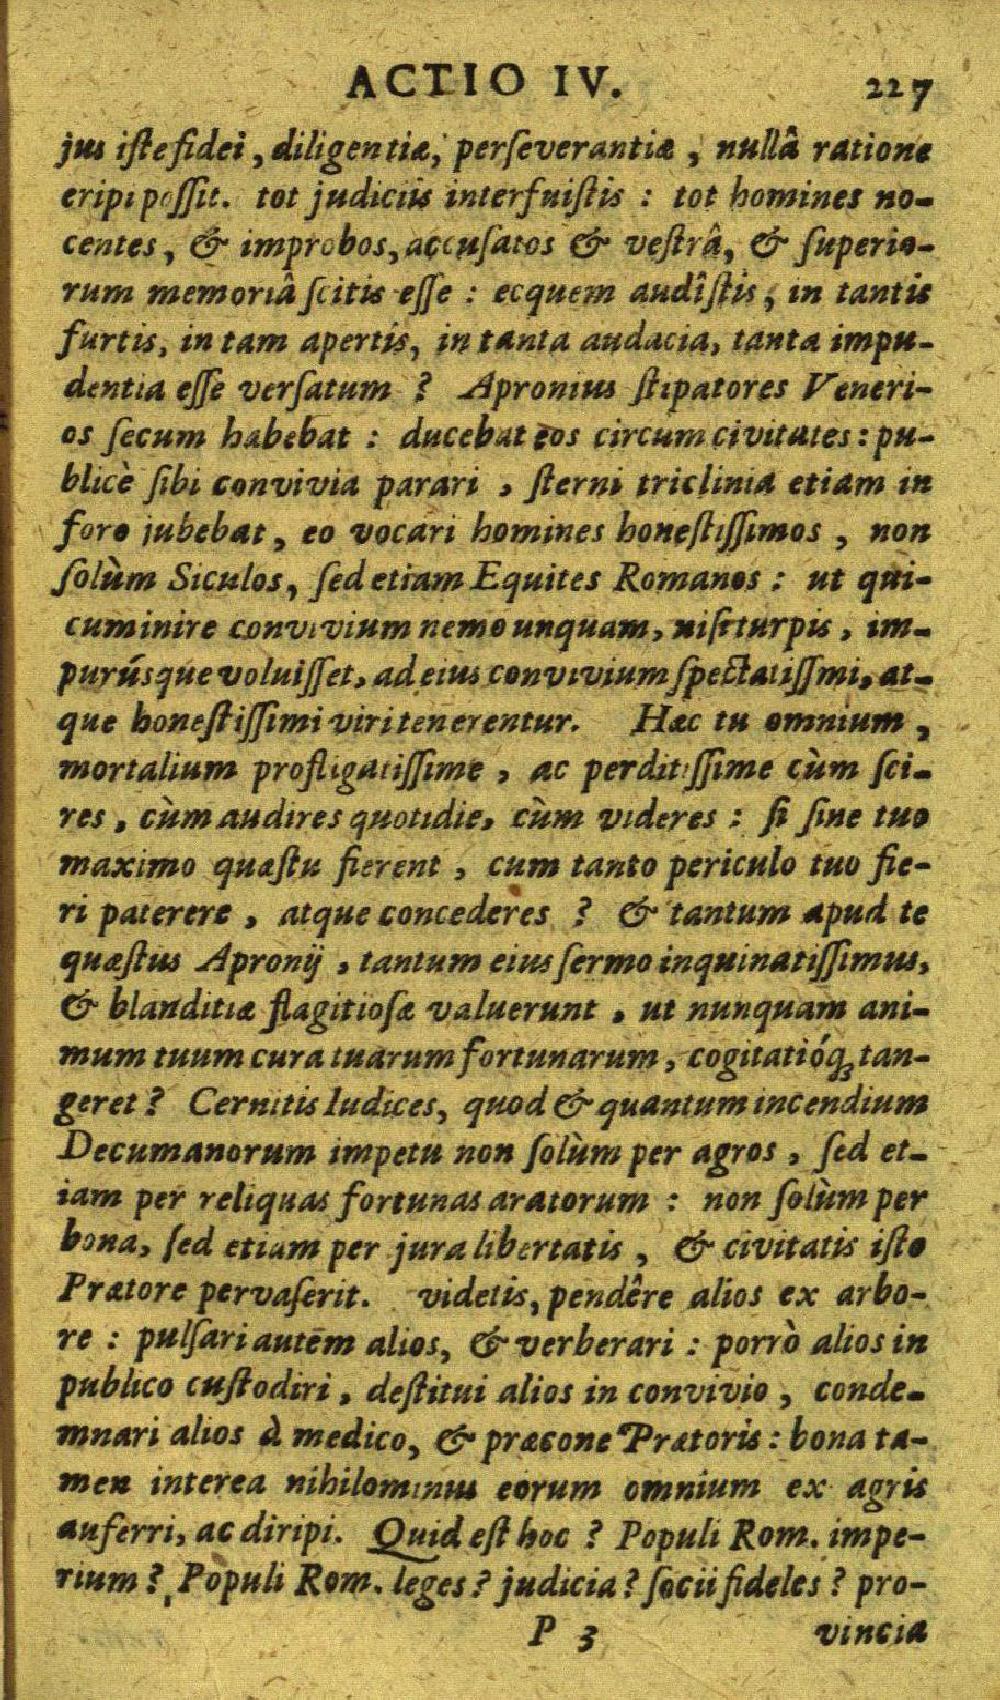 ACTIO IV. 227
jus iste fidei, diligentiæ, perseverantiæ, nullâ ratione
eripi possit. tot judiciis interfuistis : tot homines no-
centes, & improbos, accusatos & vestrâ, & superio-
rum memoriâ scitis esse : ecquem audîstis, in tantis
furtis, in tam apertis, in tanta audacia, tanta impu-
dentia esse versatum ? Apronius stipatores Veneri-
os secum habebat : ducebat eos circum civitates : pu-
blicè sibi convivia parari , sterni triclinia etiam in
foro jubebat, eo vocari homines honestissimos , non
solùm Siculos, sed etiam Equites Romanos : ut qui-
cum inire convivium nemo unquam, nisi turpis, im-
purúsque voluisset, ad eius convivium spectatissmi, at-
que honestissimi viri tenerentur. Hæc tu omnium ,
mortalium profligatissime , ac perditissime cùm sci-
res , cùm audires quotidie, cùm videres : si sine tuo
maximo quæstu fierent , cum tanto periculo tuo fie-
ri paterere , atque concederes ? & tantum apud te
quæstus Apronij , tantum eius sermo inquinatissimus,
& blanditiæ flagitiosæ valuerunt , ut nunquam ani-
mum tuum cura tuarum fortunarum, cogitatióq; tan-
geret ? Cernitis Iudices, quod & quantum incendium
Decumanorum impetu non solùm per agros , sed et-
iam per reliquas fortunas aratorum : non solùm per
bona, sed etiam per jura libertatis , & civitatis isto
Prætore pervaserit. videtis, pendêre alios ex arbo-
re : pulsari autem alios, & verberari : porrò alios in
publico custodiri , destitui alios in convivio , conde-
mnari alios à medico, & præcone Prætoris : bona ta-
men interea nihilominus eorum omnium ex agris
auferri, ac diripi. Quid est hoc ? Populi Rom. impe-
rium ? Populi Rom. leges ? judicia ? socii fideles ? pro-
P 3 vincia